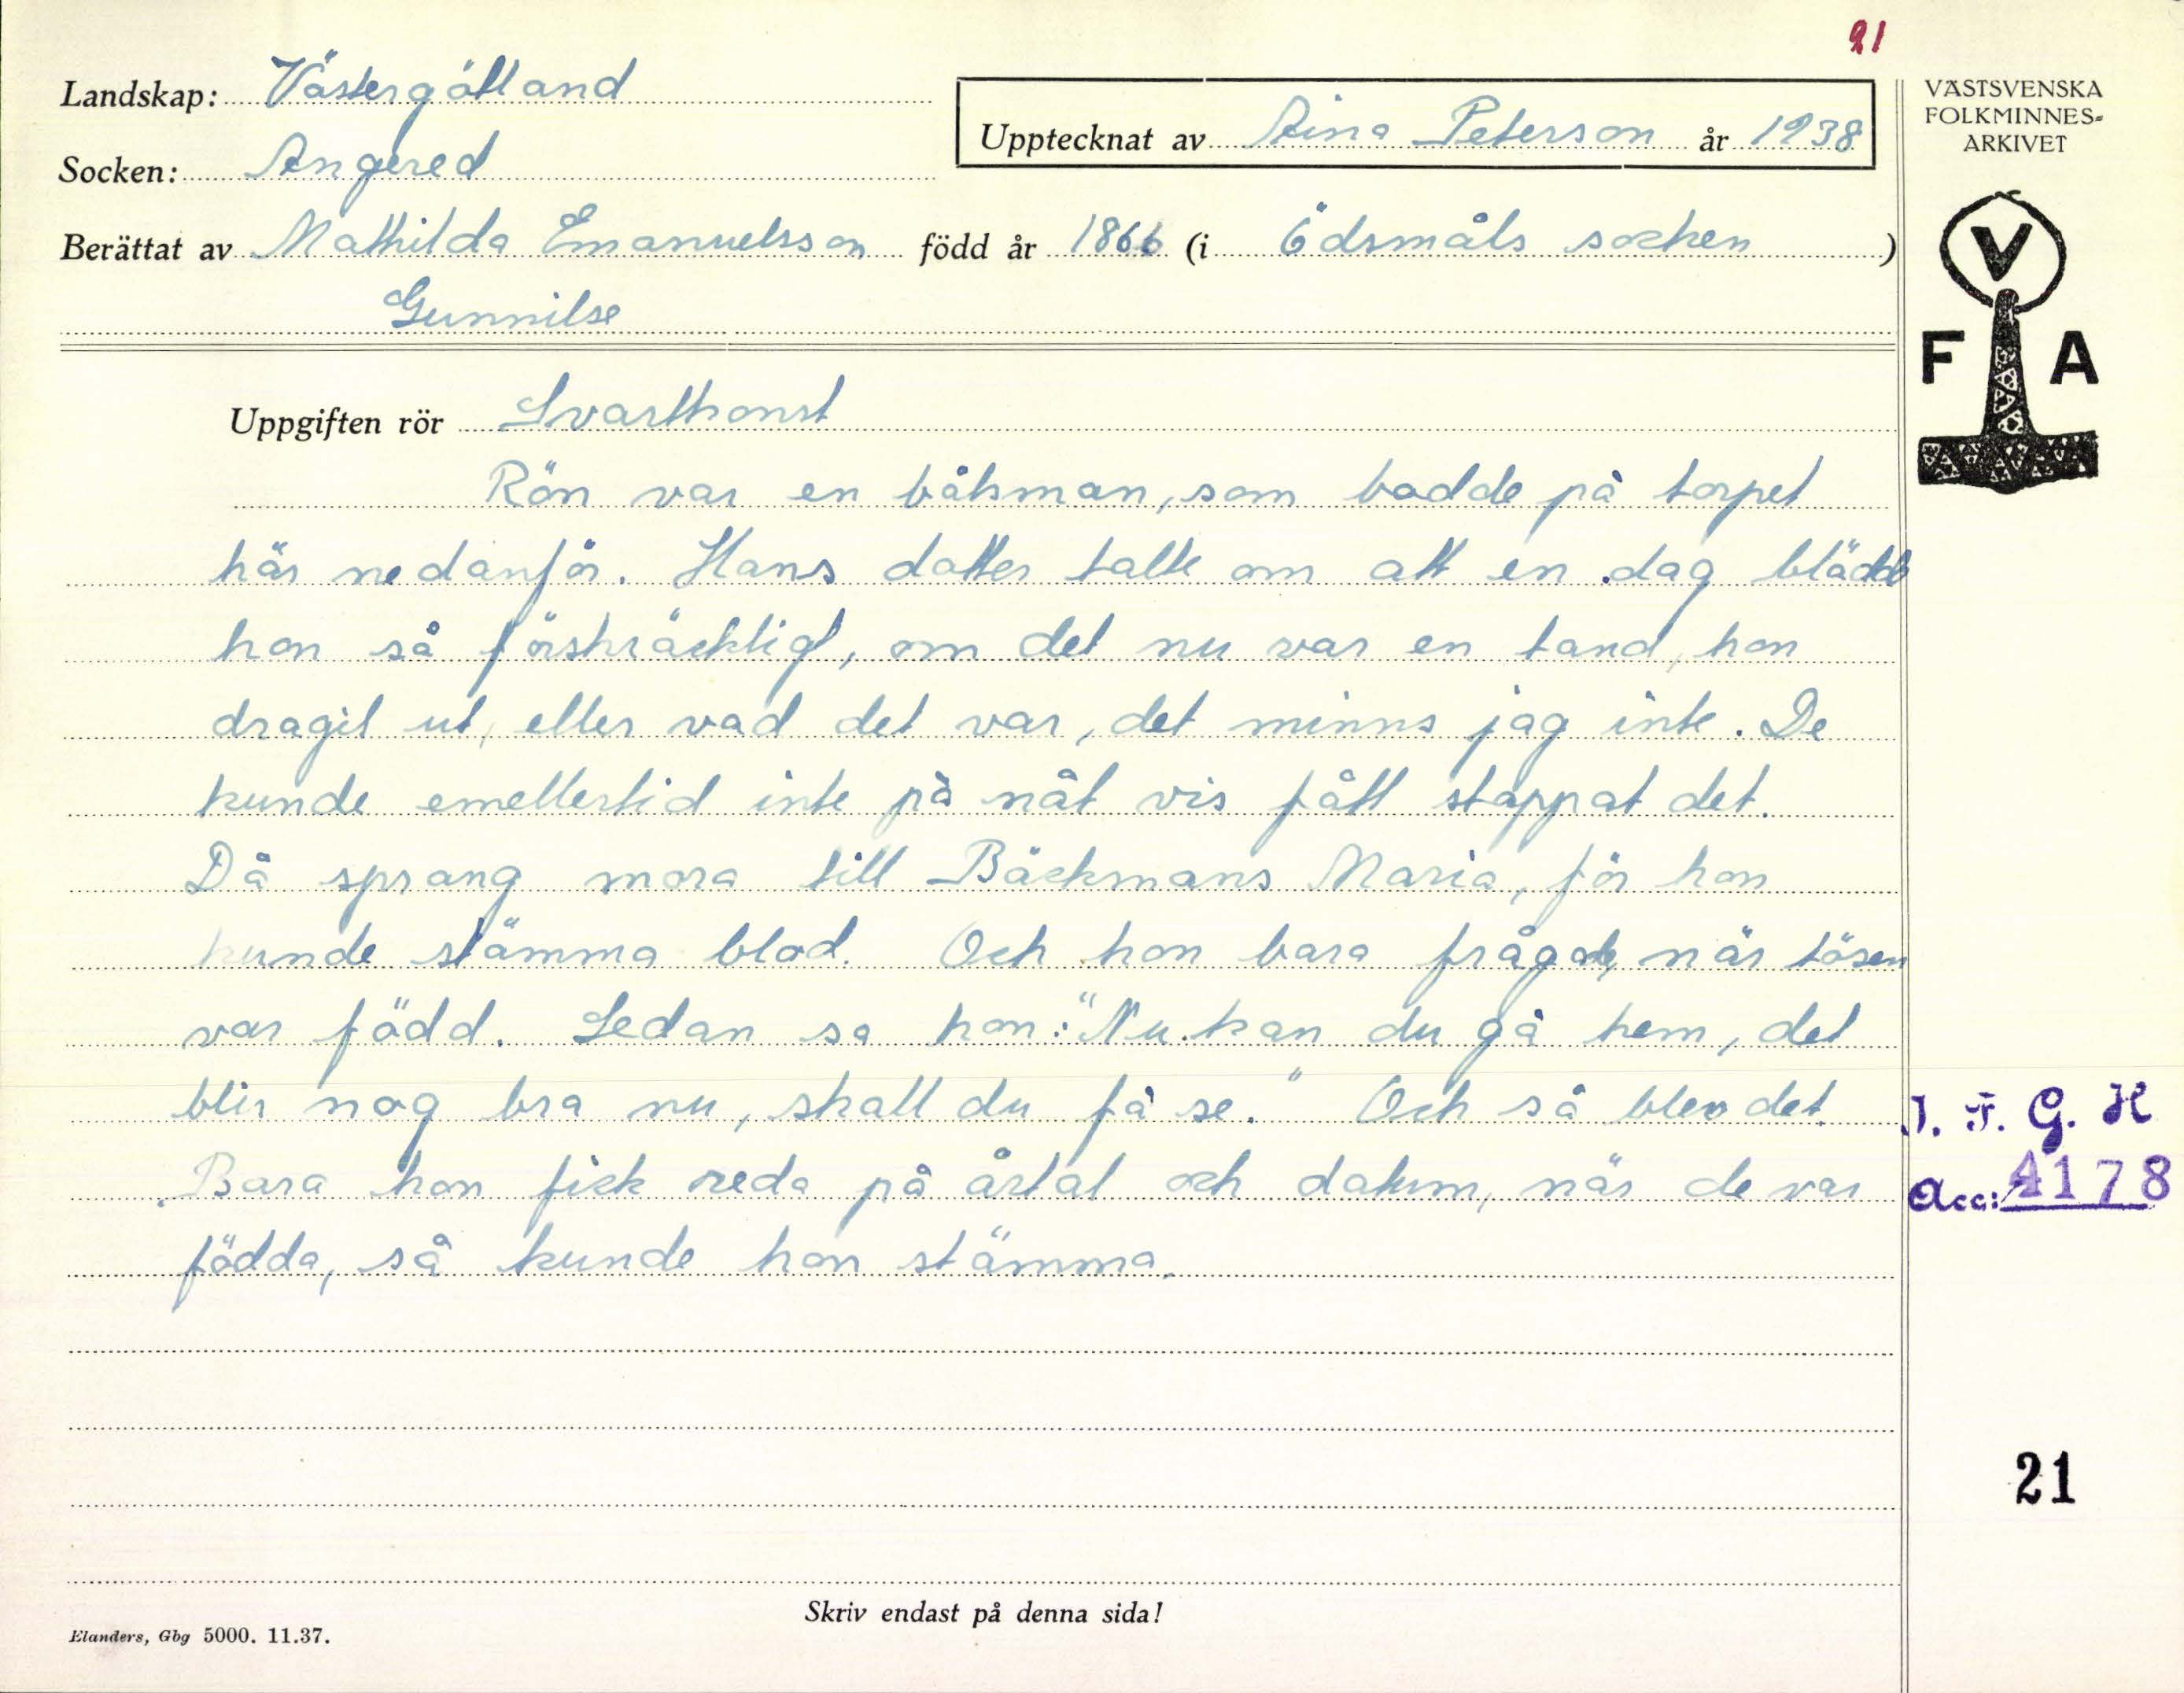 21
Landskap: Västergötland
Upptecknat av Aina Peterson år 1938
Socken: Angered
Berättat av Mathilda Emanuelsson född år 1866 (i Ödsmåls socken)
Gunnilse
VÄSTSVENSKA
FOLKMINNES-
ARKIVET
V
F A
Uppgiften rör Svartkonst
Rön var en båtsman, som bodde på torpet
här nedanför. Hans dotter talte om att en dag blödde
hon så förskräckligt, om det nu var en tand, hon
dragit ut, eller vad det var, det minns jag inte. De
kunde emellertid inte på nåt vis fått stoppat det.
Då sprang mora till Bäckmans Maria, för hon
kunde stämma blod. Och hon bara frågade, när tösen
var född. Sedan sa hon: "Nu kan du gå hem, det
blir nog bra nu, skall du få se." Och så blev det.
Bara hon fick reda på årtal och datum, när de var
födda, så kunde hon stämma.
I. F. G. H
Acc: 4178
21
Skriv endast på denna sida!
Elanders, Gbg 5000. 11.37.